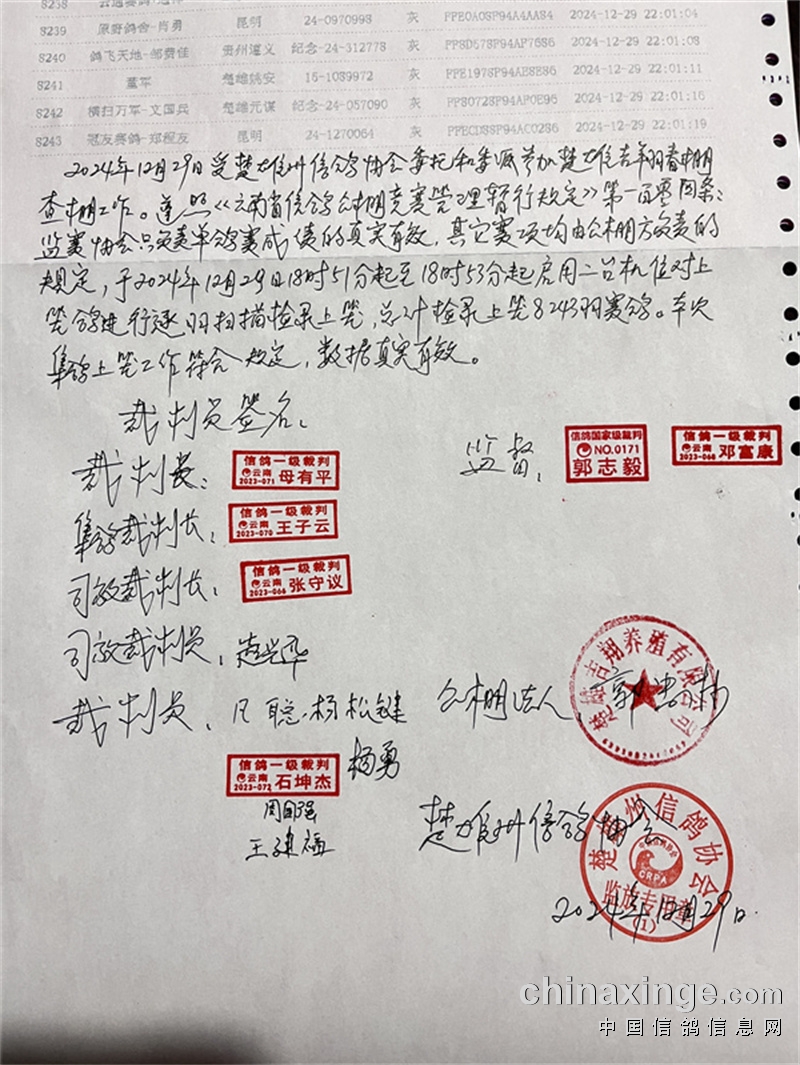 8238
8239 原野鸽舍-肖勇 昆明 24-0970998 灰 2024-12-29 22:01:04
8240 鸽飞天地-邹贤佳 贵州遵义 纪念-24-312778 灰 2024-12-29 22:01:08
8241 董军 楚雄姚安 2024-12-29 22:01:11
8242 横扫万军-文国兵 楚雄元谋 纪念-24-057090 灰 2024-12-29 22:01:16
8243 冠友赛鸽-郑程友 昆明 24-1270064 灰 2024-12-29 22:01:19
2024年12月29日受楚雄州信鸽协会委托和委派参加楚雄吉翔春棚
查棚工作。遵照《云南省信鸽公棚竞赛管理暂行规定》第一百零四条:
监赛协会只负责单鸽赛成绩的真实有效,其它赛项均由公棚方负责的
规定,于2024年12月29日18时51分起至18时53分起启用二台机位对上
笼鸽进行逐羽扫描检录上笼,总计检录上笼8243羽赛鸽。本次
集鸽上笼工作符合规定,数据真实有效。
裁判员签名:
裁判长: 信鸽一级裁判 云南 2023-071 母有平
监督: 信鸽国家级裁判 NO.0171 郭志毅 信鸽一级裁判 云南 2023-068 邓富康
集鸽裁判长: 信鸽一级裁判 云南 2023-070 王子云
司放裁判长: 信鸽一级裁判 云南 2023-066 张守议
司放裁判员: 赵兴华
裁判员: 聪 杨松键
公棚法人:
楚雄吉翔养殖有限公司
信鸽一级裁判 云南 2023-072 石坤杰
杨勇
周国强
王建福
楚雄州信鸽协会
楚雄州信鸽协会 CRPA 监放专用章 (1)
2024年12月29日
chinaxinge.com
中国信鸽信息网